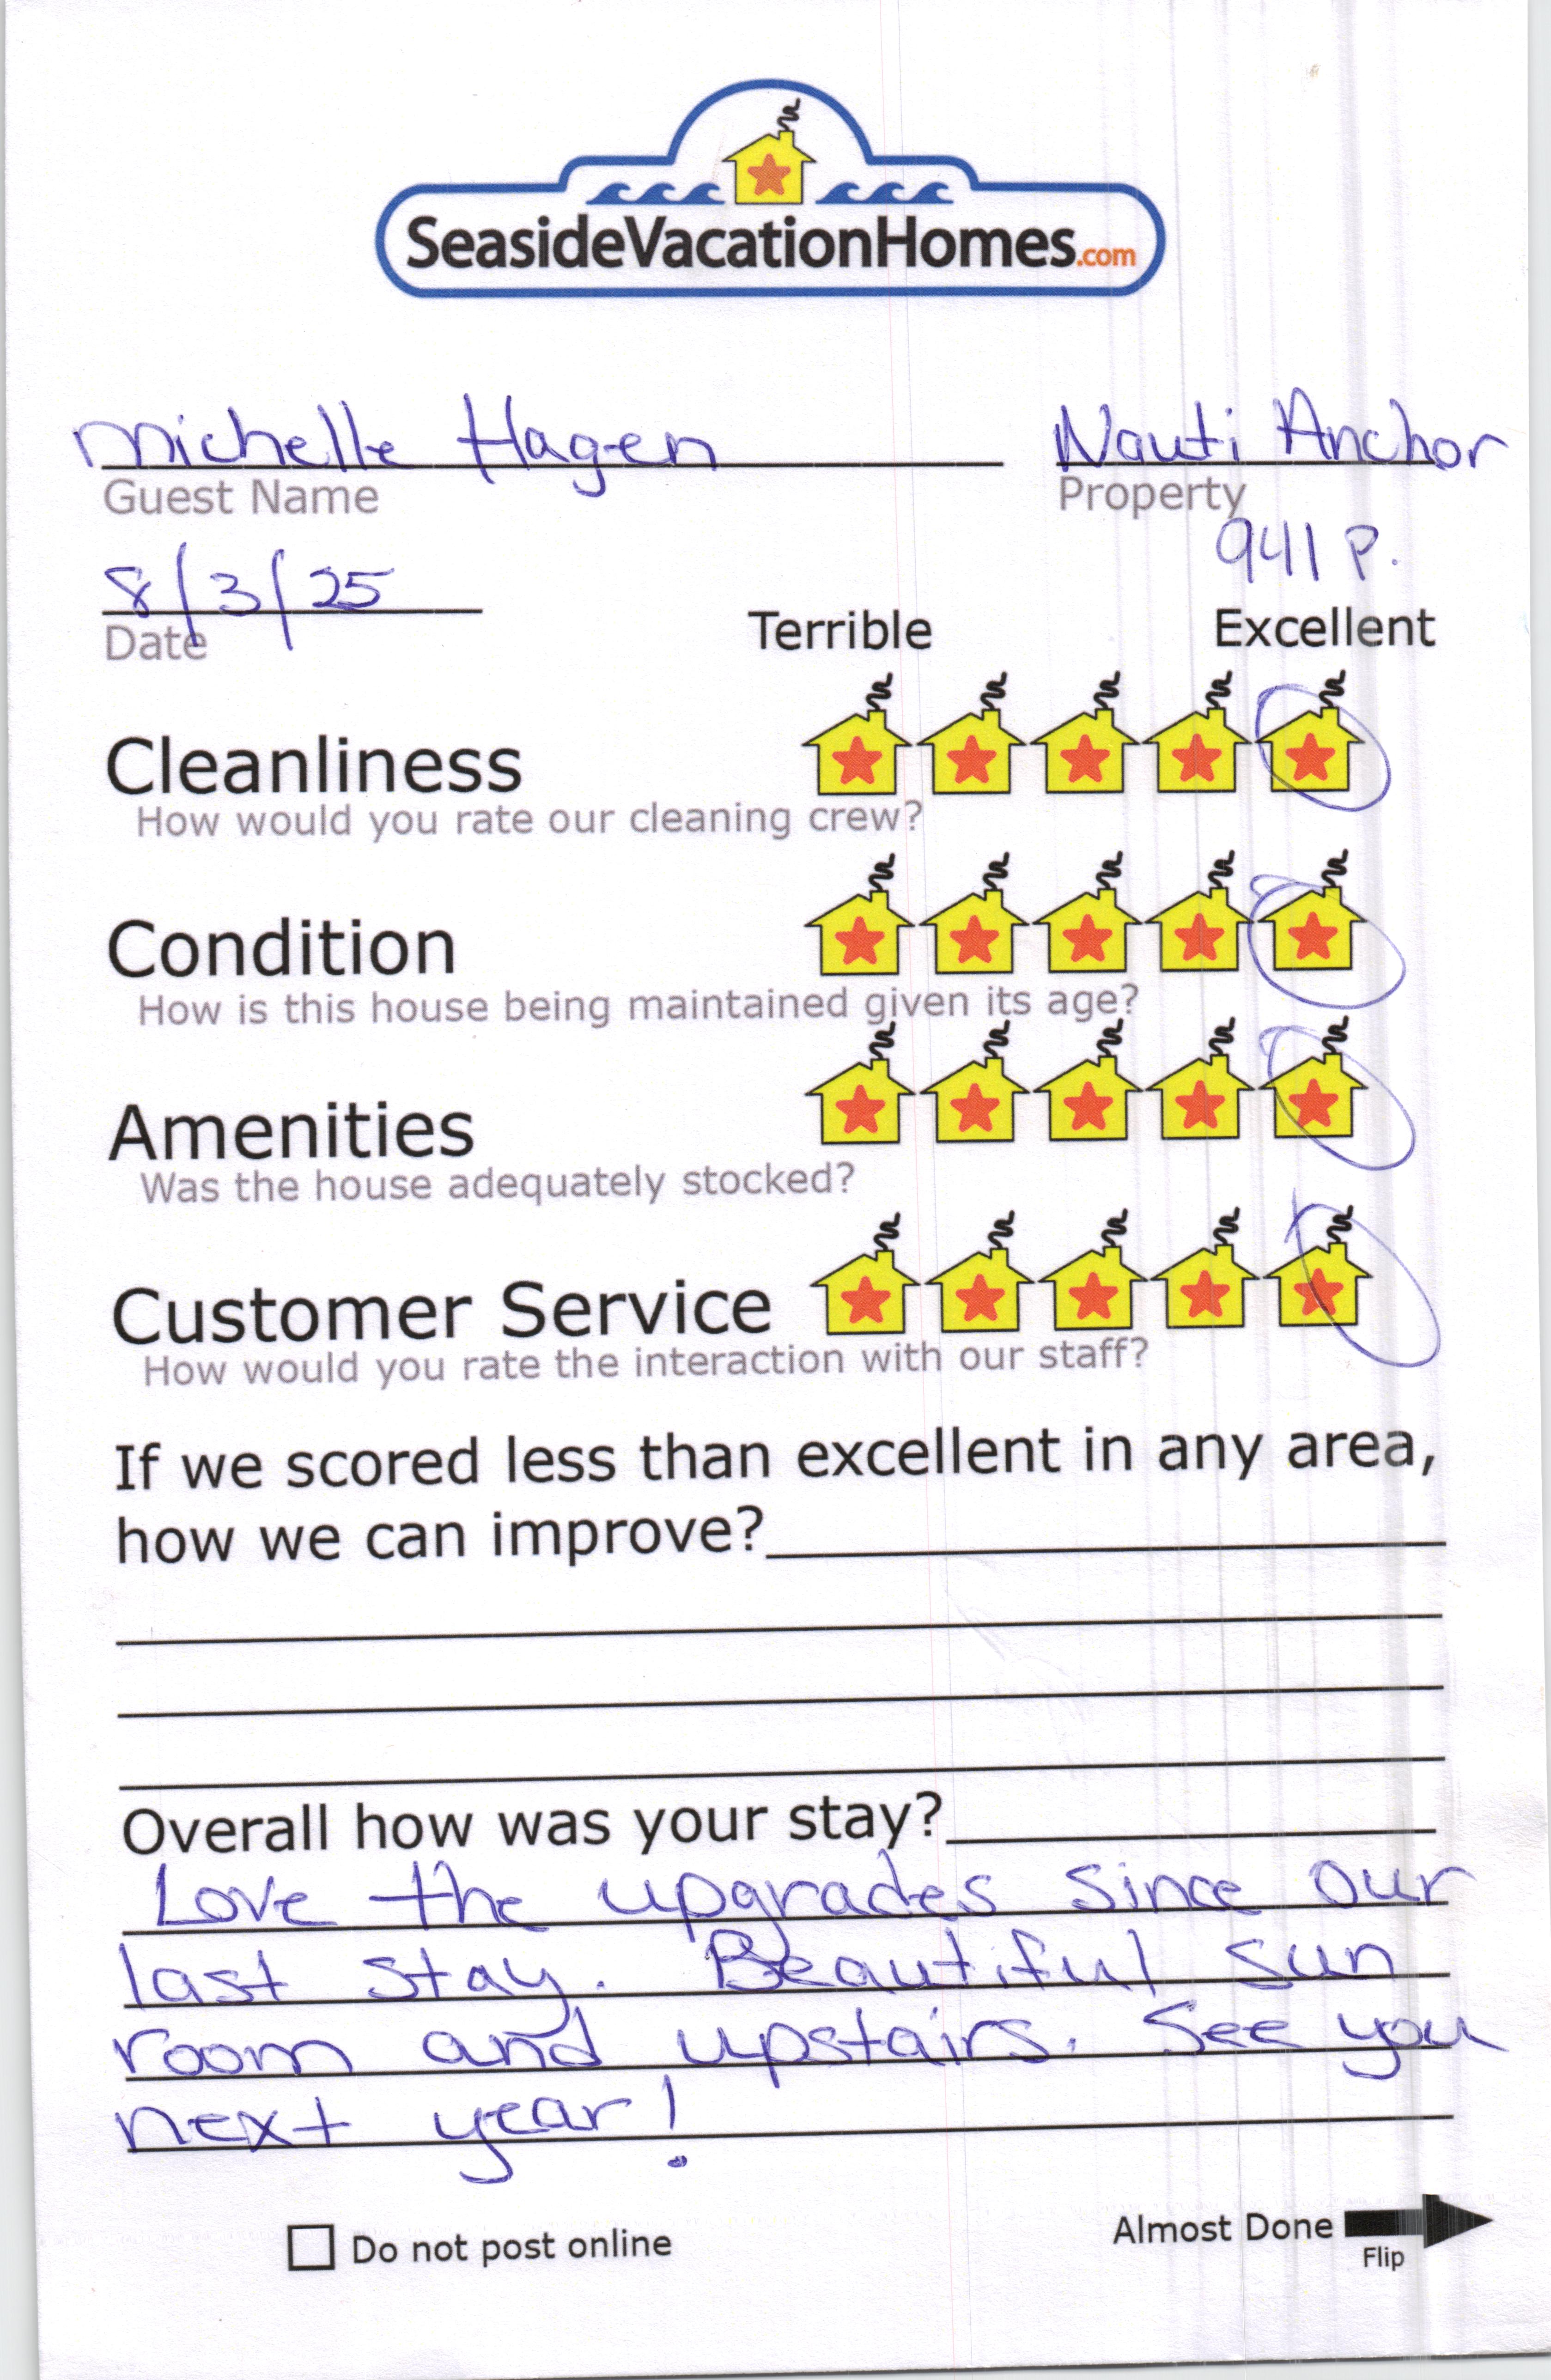 SeasideVacationHomes.com
Michelle Hagen
Nauti Anchor
Guest Name
Property
941 P.
8/3/25
Date
Terrible
Excellent
Cleanliness
How would you rate our cleaning crew?
Condition
How is this house being maintained given its age?
Amenities
Was the house adequately stocked?
Customer Service
How would you rate the interaction with our staff?
If we scored less than excellent in any area,
how we can improve?
Overall how was your stay?
Love the upgrades since our
last stay. Beautiful sun
room and upstairs. See you
next year!
Do not post online
Almost Done
Flip